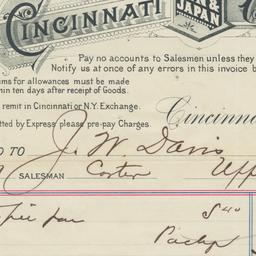 CINCINNATI
& JAPAN
Pay no accounts to Salesmen unless they
Notify us at once of any errors in this invoice b
ms for allowances must be made
hin ten days after receipt of Goods.
remit in Cincinnati or N.Y. Exchange.
tted by Express please pre-pay Charges.
Cincinna
D TO J. W. Davis
SALESMAN Carter Upp